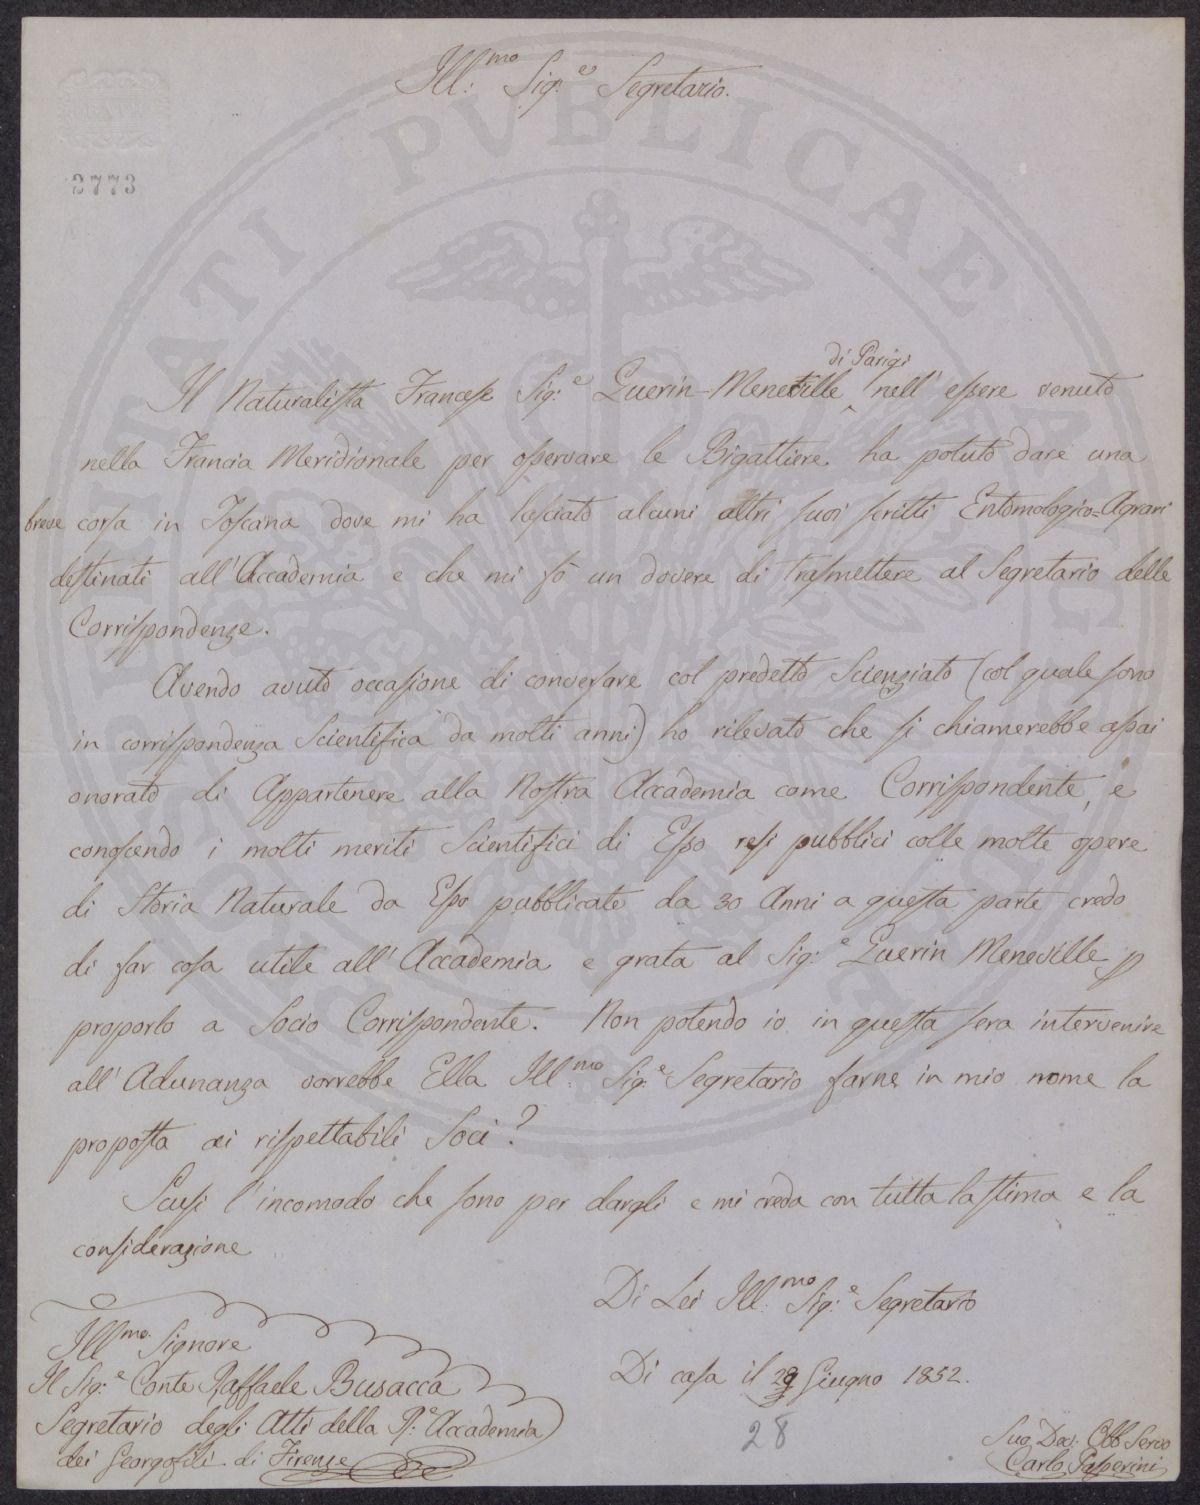 Ill:mo Sig:e Segretario.
2773
di Parigi
Il Naturalista Francese Sig:e Guerin-Meneville nell'essere venuto
nella Francia Meridionale per osservare le Bigattiere ha potuto dare una
breve corsa in Toscana dove mi ha lasciato alcuni altri suoi scritti Entomologico=Agrari
destinati all'Accademia e che mi fò un dovere di trasmettere al Segretario delle
Corrispondenze.
Avendo avuto occasione di conversare col predetto Scienziato (col quale sono
in corrispondenza Scientifica da molti anni) ho rilevato che si chiamerebbe assai
onorato di Appartenere alla Nostra Accademia come Corrispondente, e
conoscendo i molti meriti Scientifici di Esso resi pubblici colle molte opere
di Storia Naturale da Esso pubblicate da 30 Anni a questa parte credo
di far cosa utile all'Accademia e grata al Sig:e Guerin Meneville
proporlo a Socio Corrispondente. Non potendo io in questa sera intervenire
all'Adunanza vorrebbe Ella Ill:mo Sig:e Segretario farne in mio nome la
proposta ai rispettabili Soci?
Scusi l'incomodo che sono per dargli e mi creda con tutta la stima e la
considerazione
Di Lei Ill:mo Sig:e Segretario
Di casa il Giugno 1852.
28
Suo Dev: Obb Servo
Carlo Passerini
Ill:mo Signore
Il Sig:e Conte Raffaele Busacca
Segretario degli Atti della R:e Accademia
dei Georgofili di Firenze
PVBLICAE